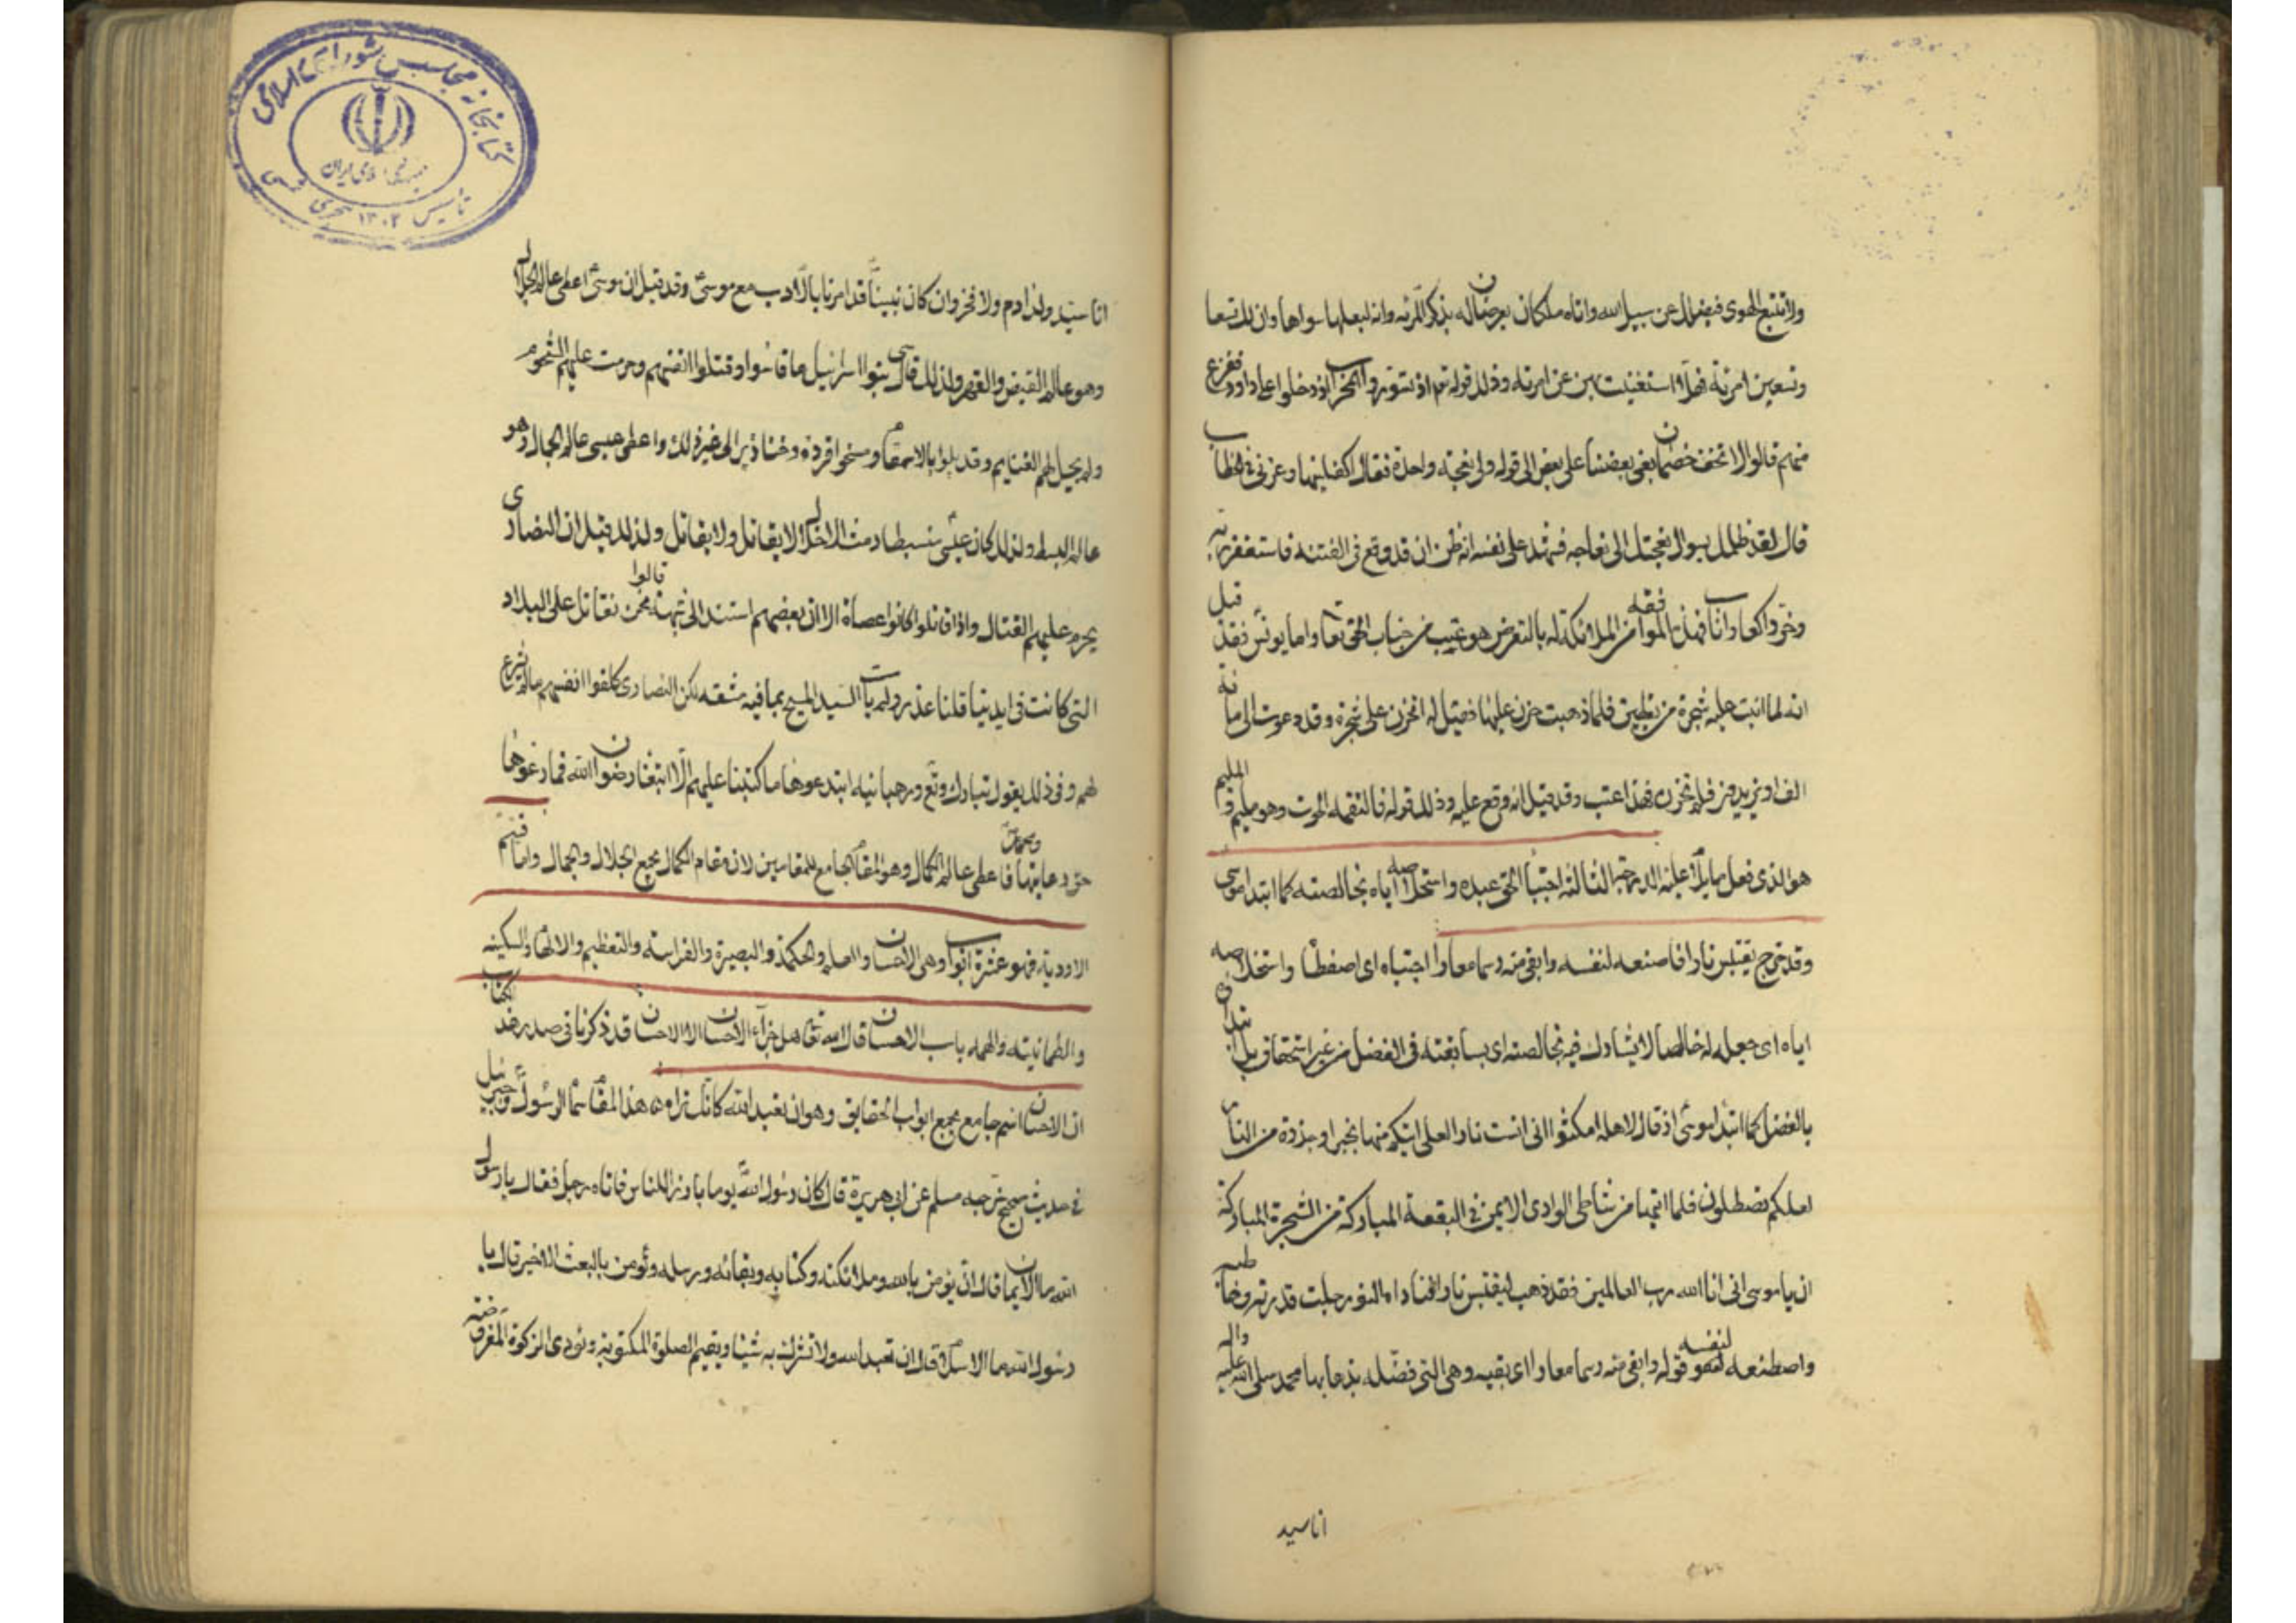 ولا تتبع الهوى فيضلك عن سبيل الله واتاه ملكان يعرضان له بذكر المرئه وانه ليعلها سواها وان لك تسعا
وتسعين امرئة فهلا استغنيت بهن عن امرئه وذلك قوله تع اذ تسوروا المحراب اذ دخلوا على داود ففزع
منهم قالوا لا تخف خصمان بغى بعضنا على بعض الى قوله ولى نعجة واحدة فقال اكفلنيها وعزنى فى الخطاب
قال لقد ظلمك بسوال نعجتك الى نعاجه فشهد على نفسه انه ظن ان قد وقع فى الفتنه فاستغفر ربه
وخر راكعا واناب فهذا الموافقه من الملائكة له بالتعرض هو عتب من جناب الحق تعا واما يونس فقد قيل
انه لما انبت عليه شجرة من يقطين فلما ذهبت حزن عليها فقيل له اتحزن على شجرة وقد دعوت الى مائة
الف او يزيدون فلم تحزن فهذا عتب وقد قيل انه وقع عليه وذلك قوله فالتقمه الحوت وهو مليم والمليم
هو الذى فعل ما يلام عليه الدرجة الثالثه اجتباء الحق عبده واستخلاصه اياه بخالصته كما ابتدا موسى
وقد خرج يقتبس نارا فاصنعه لنفسه وابقى منه رسما معارا اجتباه اى اصفطا واستخلاصه
اياه اى جعله له خالصا لا يشارك فيه بخالصته اى بسابقته فى الفضل من غير استحقاق بل ابتداى
بالفضل كما ابتدا موسى اذ قال لاهله امكثوا انى انست نارا لعلى اتيكم منها بخبر او جذوة من النار
لعلكم تصطلون فلما اتيها من شاطى الوادى الايمن فى البقعة المباركة من الشجرة المباركة
ان يا موسى انى انا الله رب العالمين فقد ذهب ليقتبس نارا فناداه النور جلت قدرته وخاطبه
واصطنعه لنفسه قوله وابقى منه رسما معارا اى بقيه وهى التى فضله بذهابها محمد صلى الله عليه واله
انا سيد
انا سيد ولد ادم ولا فخر وان كان نبينا قد امرنا بالادب مع موسى وقد قيل ان موسى اعطى عالم الجلال
وهو عالم القبض والقهر ولذلك قاسى بنوا اسرائيل ما قاسوا وقتلوا انفسهم وحرمت عليهم الشحوم
ولم يحل لهم الغنايم وقد بلوا بالامقام ومسخوا قردة وخنازير الى غير ذلك واعطى عيسى عالم الجمال وهو
عالم البسط ولذلك كان عيسى منبسطا دمث الاخلاق لا يقاتل ولا يقاتل ولذلك قيل ان النصارى
يحرم عليهم القتال واذا قاتلوا كانوا عصاة الا ان بعضهم استند الى شبهة قالوا نحن نقاتل على البلاد
التى كانت فى ايدينا قلنا عذر ولم يات السيد المسيح بما فيه مشقه لكن النصارى كلفوا انفسهم ما لم يشرع
لهم وفى ذلك يقول تبارك وتع ورهبانيه ابتدعوها ما كتبنا عليهم الا ابتغا رضوان الله فما رعوها
حق رعايتها ومحمد فاعطى عالم الكمال وهو المقام الجامع للمقامين لان مقام الكمال يجمع الجلال والجمال واما قسم
الاوديه فهو عشرة ابواب وهى الاحسان والعلم والحكمة والبصيرة والفراسه والتعظيم والالهام والسكينه
والطمانينه والهمه باب الاحسان قال الله تع هل جزاء الاحسان الا الاحسان قد ذكرنا فى صدر هذا الكتاب
ان الاحسان اسم جامع يجمع ابواب الحقايق وهو ان تعبد الله كانك تراه هذا المقام سال الرسول جبرئيل
فى حديث صحيح خرجه مسلم عن ابى هريرة قال كان رسول الله يوما بارزا للناس فاتاه رجل فقال يا رسول
الله ما الايمان قال ان يؤمن بالله وملائكته وكتابه وبلقائه ورسله وتؤمن بالبعث الاخير قال يا
رسول الله ما الاسلام قال ان تعبد الله ولا تشرك به شيئا ويقيم الصلوة المكتوبه وتؤدى الزكوة المفروضة
کتابخانه مجلس شورای اسلامی
جمهوری اسلامی ایران
تاسیس ۱۳۰۲ هجری شمسی